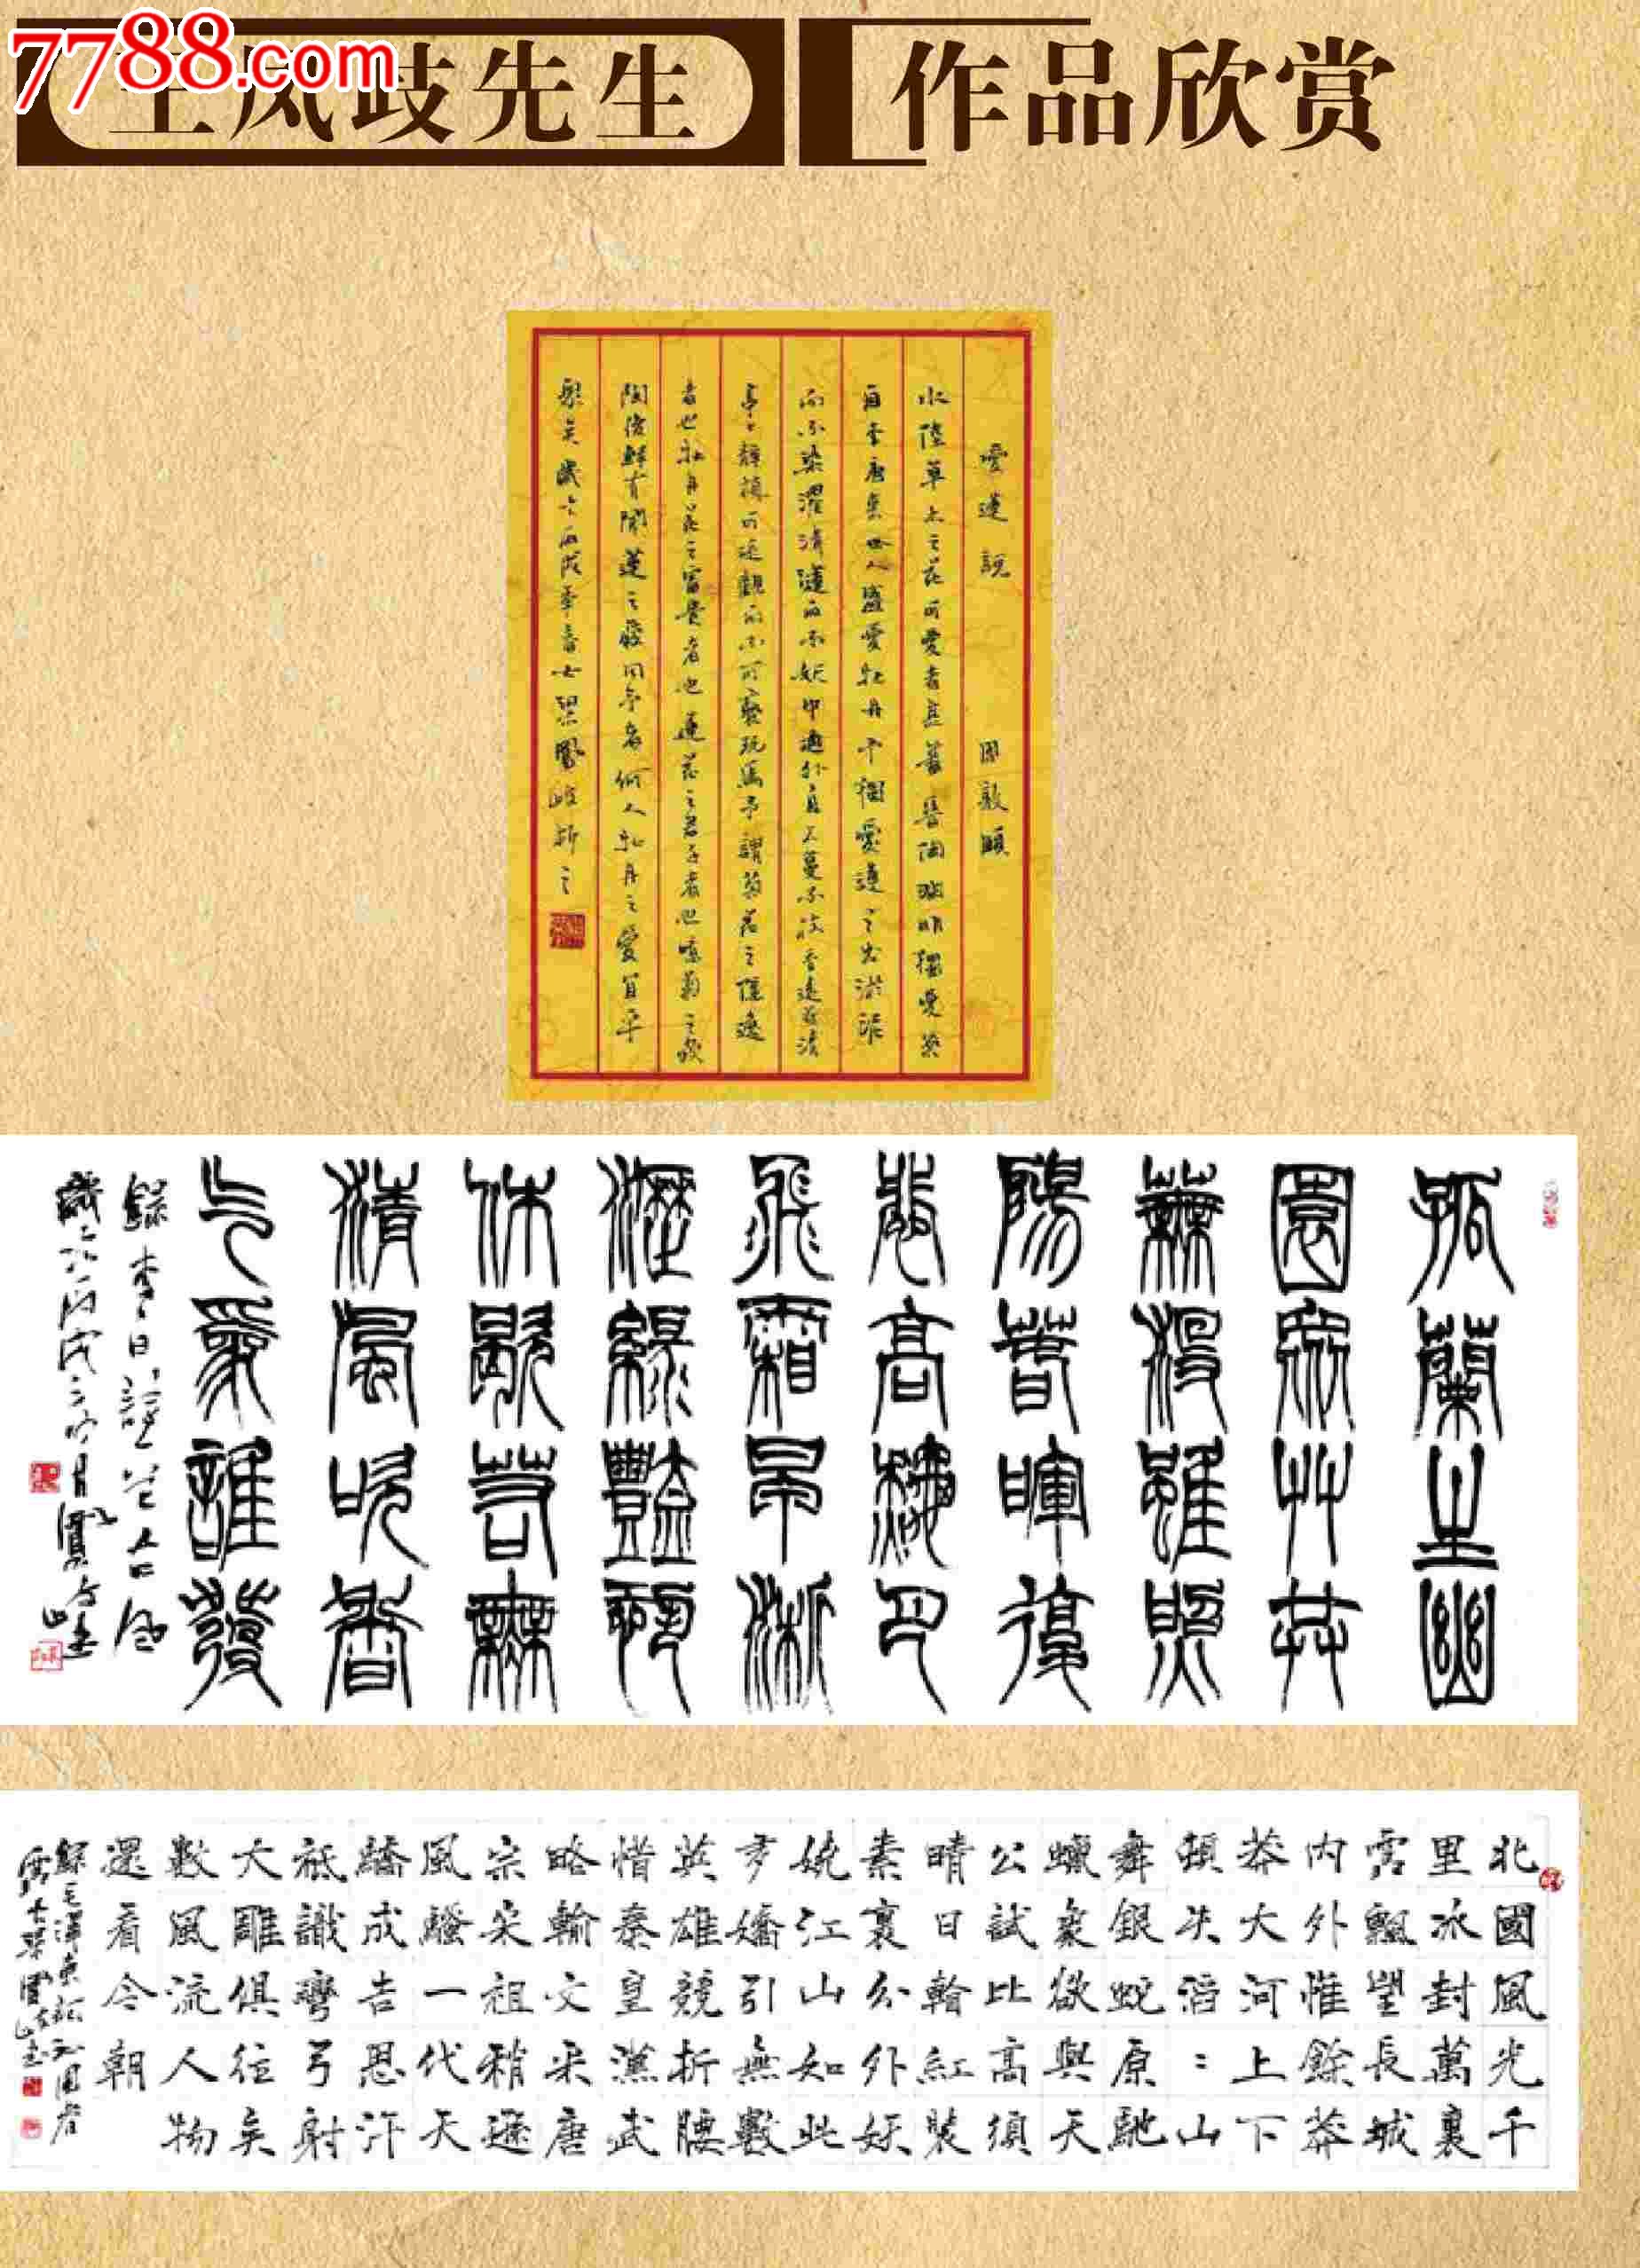 7788.com
王凤歧先生
作品欣赏
愛蓮說 周敦頤
水陸草木之花可愛者甚蕃晉陶淵明獨愛菊
自李唐来世人盛愛牡丹予獨愛蓮之出淤泥
而不染濯清漣而不妖中通外直不蔓不枝香遠益清
亭亭靜植可遠觀而不可褻玩焉予謂菊花之隱逸
者也牡丹花之富貴者也蓮花之君子者也噫菊之愛
陶後鮮有聞蓮之愛同予者何人牡丹之愛宜乎
眾矣歲次丙戌
孤蘭生幽
園眾艸共
蕪沒雖照
陽春暉復
悲高秋月
飛霜早淅
瀝綠豔恐
休歇若無
清風吹香
气爲誰發
錄李白詩
歲次丙戌
北國風光千
里冰封萬裏
雪飄望長城
内外惟餘莽
莽大河上下
頓失滔:山
舞銀蛇原馳
蠟象欲與天
公試比高須
晴日輪紅裝
素裹分外妖
嬈江山如此
多嬌引無數
英雄競折腰
惜秦皇漢武
略輸文采唐
宗宋祖稍遜
風騷一代天
驕成吉思汗
祗識彎弓射
大雕俱往矣
數風流人物
還看今朝
錄毛澤東